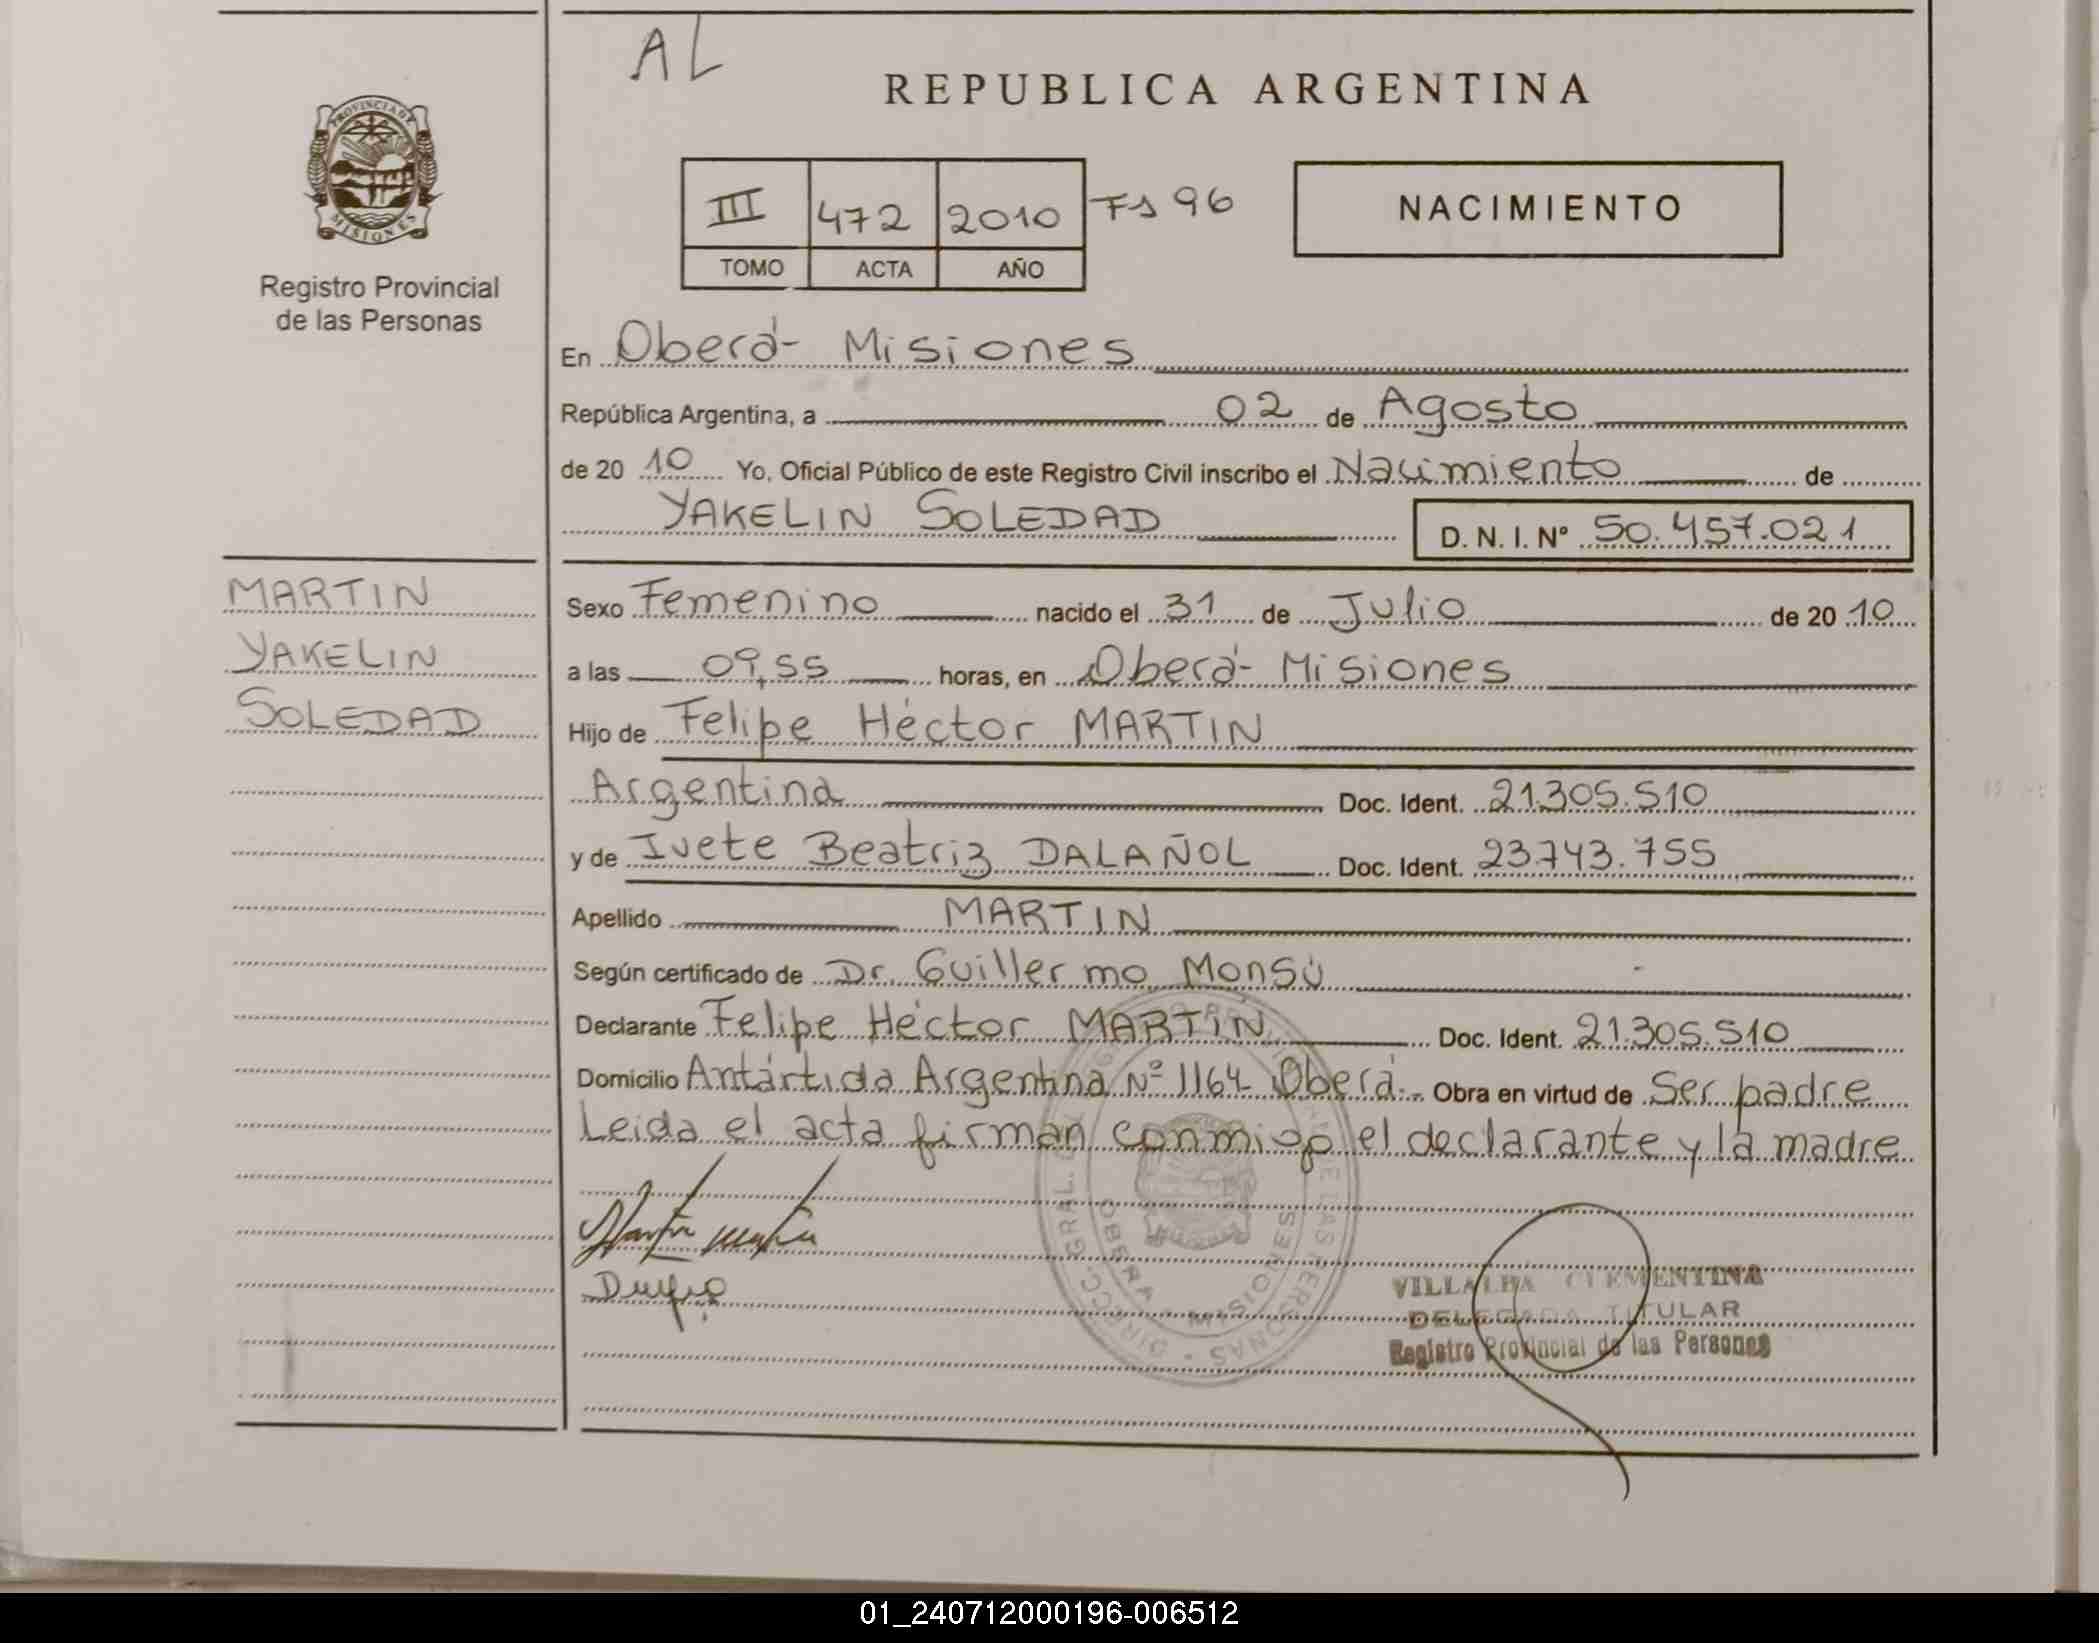 AL
REPUBLICA ARGENTINA
PROVINCIA DE
MISIONES
Registro Provincial
de las Personas
III 472 2010 Fs 96
TOMO ACTA AÑO
NACIMIENTO
En Oberá- Misiones
República Argentina, a 02 de Agosto
de 20 10 Yo, Oficial Público de este Registro Civil inscribo el Nacimiento de
YAKELIN SOLEDAD D. N. I. Nº 50.457.021
MARTIN
YAKELIN
SOLEDAD
Sexo Femenino nacido el 31 de Julio de 20 10
a las 09,55 horas, en Oberá- Misiones
Hijo de Felipe Héctor MARTIN
Argentina Doc. Ident. 21.305.510
y de Ivete Beatriz DALAÑOL Doc. Ident. 23.743.755
Apellido MARTIN
Según certificado de Dr. Guillermo Monsú
Declarante Felipe Héctor MARTIN Doc. Ident. 21.305.510
Domicilio Antártida Argentina Nº 1164 Oberá.- Obra en virtud de Ser padre
Leida el acta firman conmigo el declarante y la madre
VILLALBA CLEMENTINA
DELEGADA TITULAR
Registro Provincial de las Personas
01_240712000196-006512